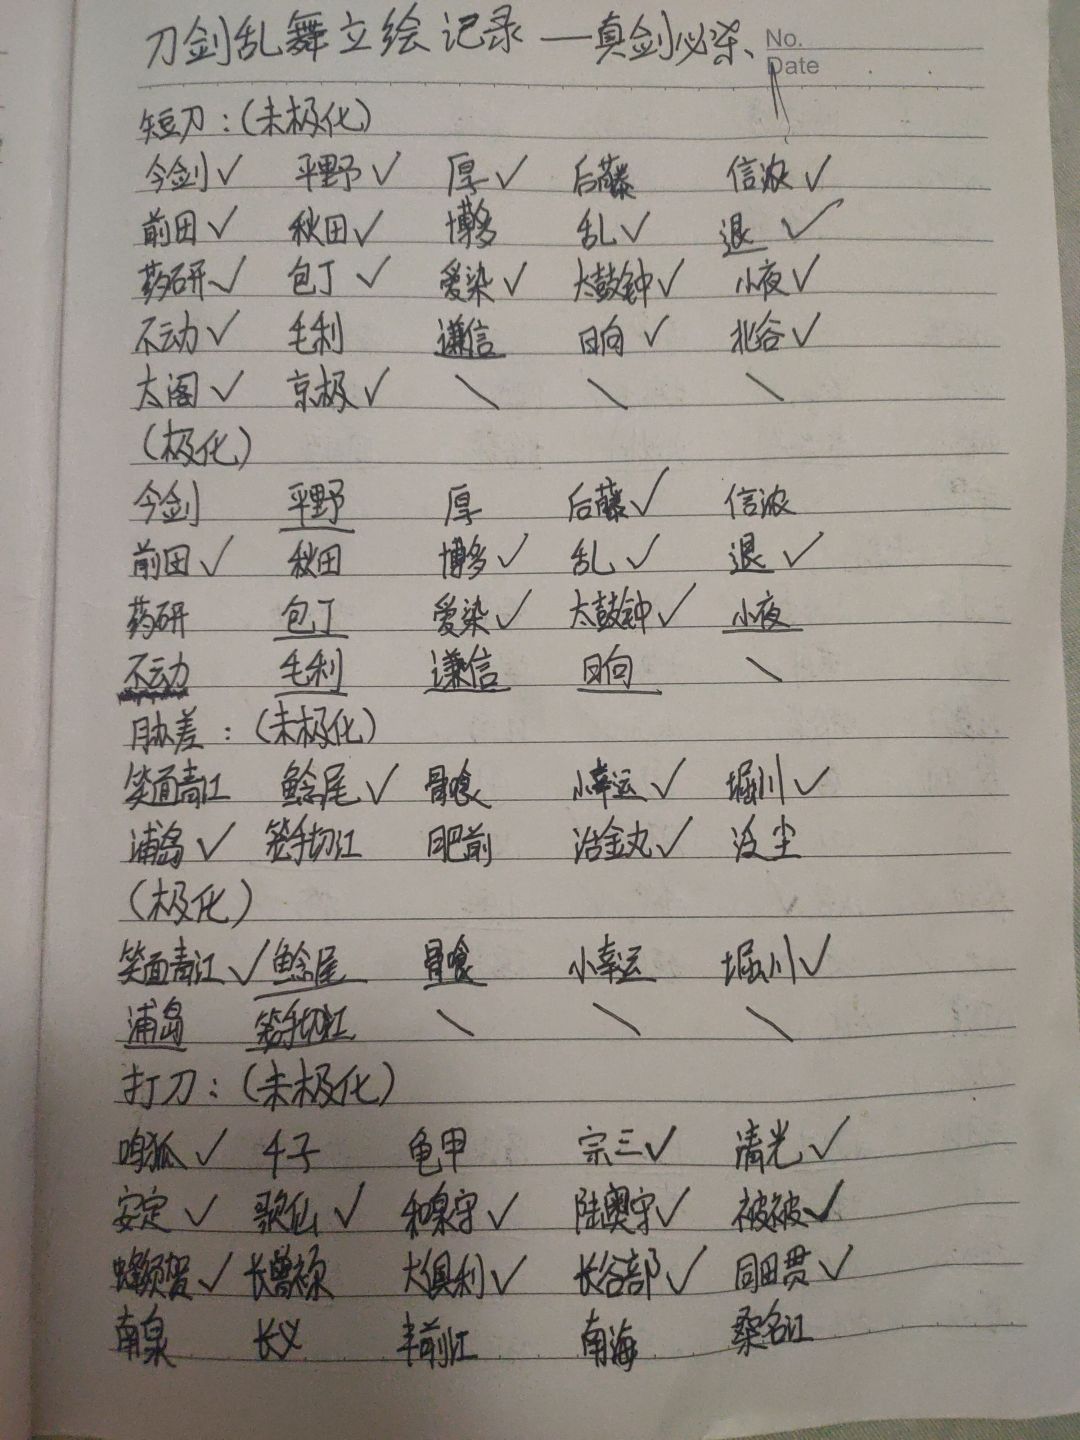 刀剑乱舞立绘记录——真剑必杀、
No.
Date
短刀：（未极化）
今剑✓ 平野✓ 厚✓ 后藤 信浓✓
前田✓ 秋田✓ 博多 乱✓ 退✓
药研✓ 包丁✓ 爱染✓ 太鼓钟✓ 小夜✓
不动✓ 毛利 谦信 日向✓ 北谷✓
太阁✓ 京极✓ \ \ \
（极化）
今剑 平野 厚 后藤✓ 信浓
前田✓ 秋田 博多✓ 乱✓ 退✓
药研 包丁 爱染✓ 太鼓钟✓ 小夜
不动 毛利 谦信 日向 \
胁差：（未极化）
笑面青江 鲶尾✓ 骨喰 小幸运✓ 堀川✓
浦岛✓ 笼手切江 肥前 治金丸✓
（极化）
笑面青江✓ 鲶尾 骨喰 小幸运 堀川✓
浦岛 笼手切江 \ \ \
打刀：（未极化）
鸣狐✓ 千子 龟甲 宗三✓ 清光✓
安定✓ 歌仙✓ 和泉守✓ 陆奥守✓ 被被✓
蜂须贺✓ 长曾祢 大俱利✓ 长谷部✓ 同田贯✓
南泉 长义 丰前江 南海 桑名江